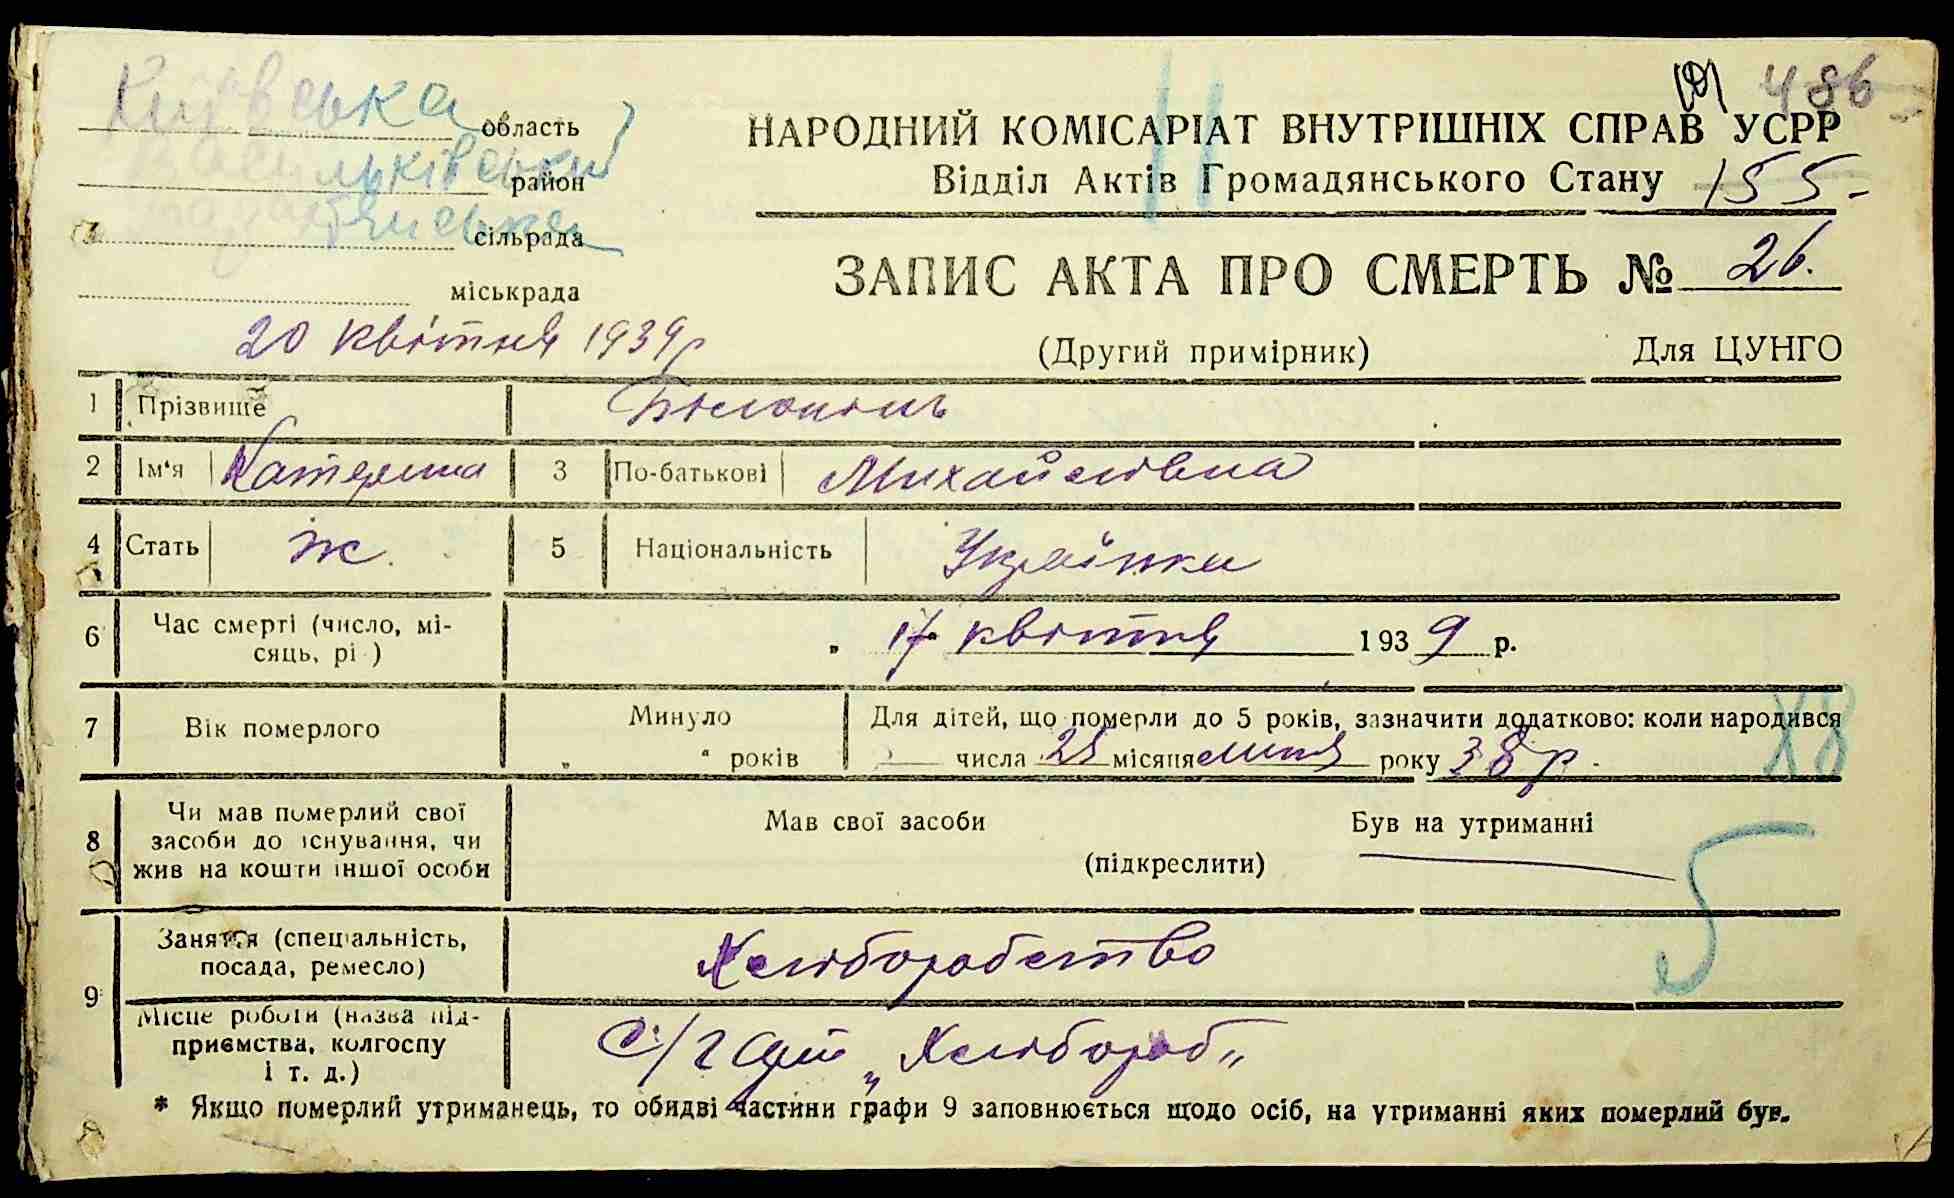 486
Київська область
НАРОДНИЙ КОМІСАРІАТ ВНУТРІШНІХ СПРАВ УСРР
Васильківський район
Відділ Актів Громадянського Стану 155-
сільрада
ЗАПИС АКТА ПРО СМЕРТЬ № 26.
міськрада
20 квітня 1939р
(Другий примірник) Для ЦУНГО
1 Прізвище
2 Ім'я Катерина 3 По-батькові Михайлівна
4 Стать ж. 5 Національність Українка
6 Час смерті (число, мі-
сяць, рі ) „ 17 квітня 1939 р.
7 Вік померлого Минуло
„ “ років
Для дітей, що померли до 5 років, зазначити додатково: коли народився
числа 28 місяця липня року 38 р.
8 Чи мав померлий свої
засоби до існування, чи
жив на кошти іншої особи
Мав свої засоби Був на утриманні
(підкреслити)
5
9 Заняття (спеціальність,
посада, ремесло) Хліборобство
Місце роботи (назва під-
приємства, колгоспу
і т. д.) С/г арт „Хлібороб"
* Якщо померлий утриманець, то обидві частини графи 9 заповнюється щодо осіб, на утриманні яких померлий був.